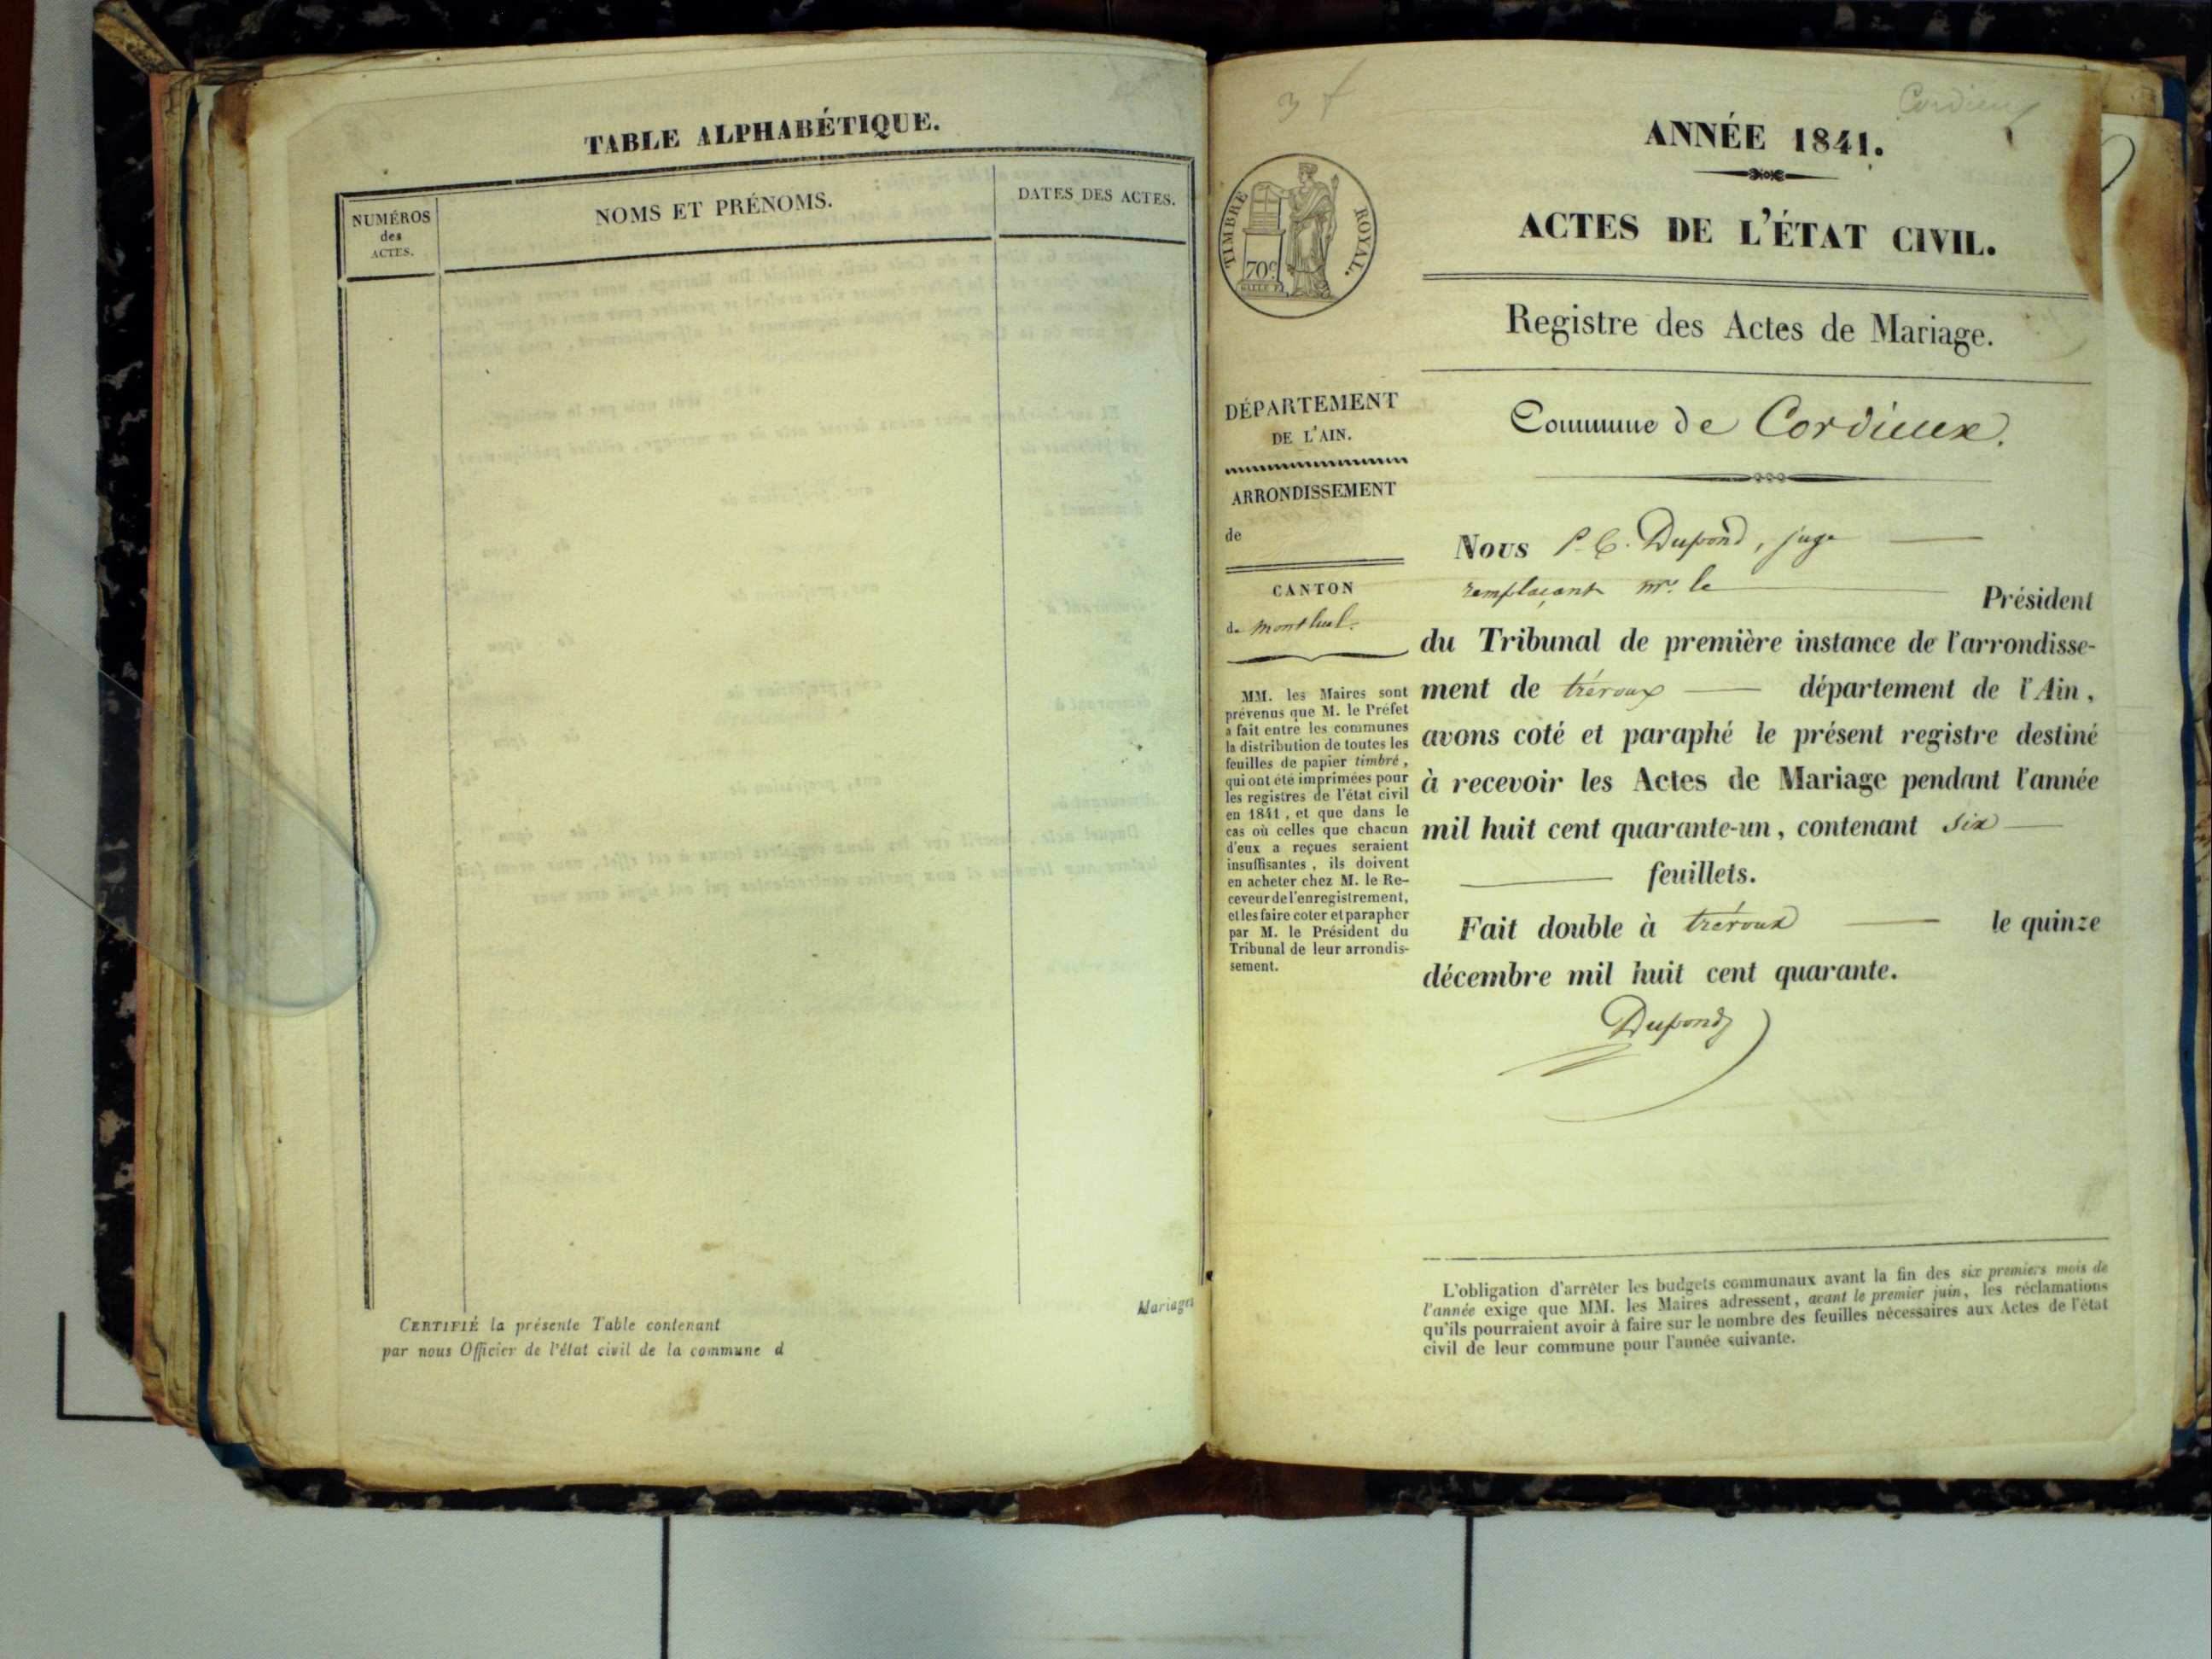 TABLE ALPHABÉTIQUE.
NUMÉROS
des
ACTES.
NOMS ET PRÉNOMS.
DATES DES ACTES.
CERTIFIÉ la présente Table contenant
par nous Officier de l'état civil de la commune d
Mariages
3 f
Cordieux
ANNÉE 1841.
ACTES DE L'ÉTAT CIVIL.
Registre des Actes de Mariage.
Commune de Cordieux.
TIMBRE ROYAL.
70c
DÉPARTEMENT
DE L'AIN.
ARRONDISSEMENT
de
CANTON
de Montluel.
MM. les Maires sont
prévenus que M. le Préfet
a fait entre les communes
la distribution de toutes les
feuilles de papier timbré,
qui ont été imprimées pour
les registres de l'état civil
en 1841, et que dans le
cas où celles que chacun
d'eux a reçues seraient
insuffisantes, ils doivent
en acheter chez M. le Re-
ceveur de l'enregistrement,
et les faire coter et parapher
par M. le Président du
Tribunal de leur arrondis-
sement.
Nous P. C. Dupond, juge
remplaçant mr. le Président
du Tribunal de première instance de l'arrondisse-
ment de trévoux département de l'Ain,
avons coté et paraphé le présent registre destiné
à recevoir les Actes de Mariage pendant l'année
mil huit cent quarante-un, contenant six
feuillets.
Fait double à trévoux le quinze
décembre mil huit cent quarante.
Dupond
L'obligation d'arrêter les budgets communaux avant la fin des six premiers mois de
l'année exige que MM. les Maires adressent, avant le premier juin, les réclamations
qu'ils pourraient avoir à faire sur le nombre des feuilles nécessaires aux Actes de l'état
civil de leur commune pour l'année suivante.